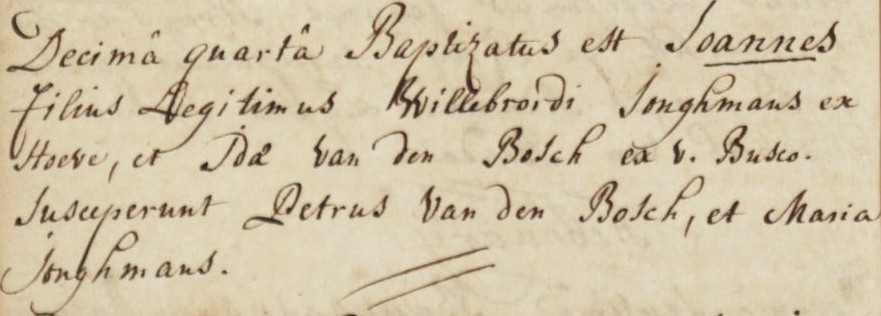 Decimâ quartâ Baptizatus est Joannes
filius Legitimus Willebrordi Jonghmans ex
Hoeve, et Idæ van den Bosch ex v. Busco.
Susceperunt Petrus Van den Bosch, et Maria
Jonghmans.